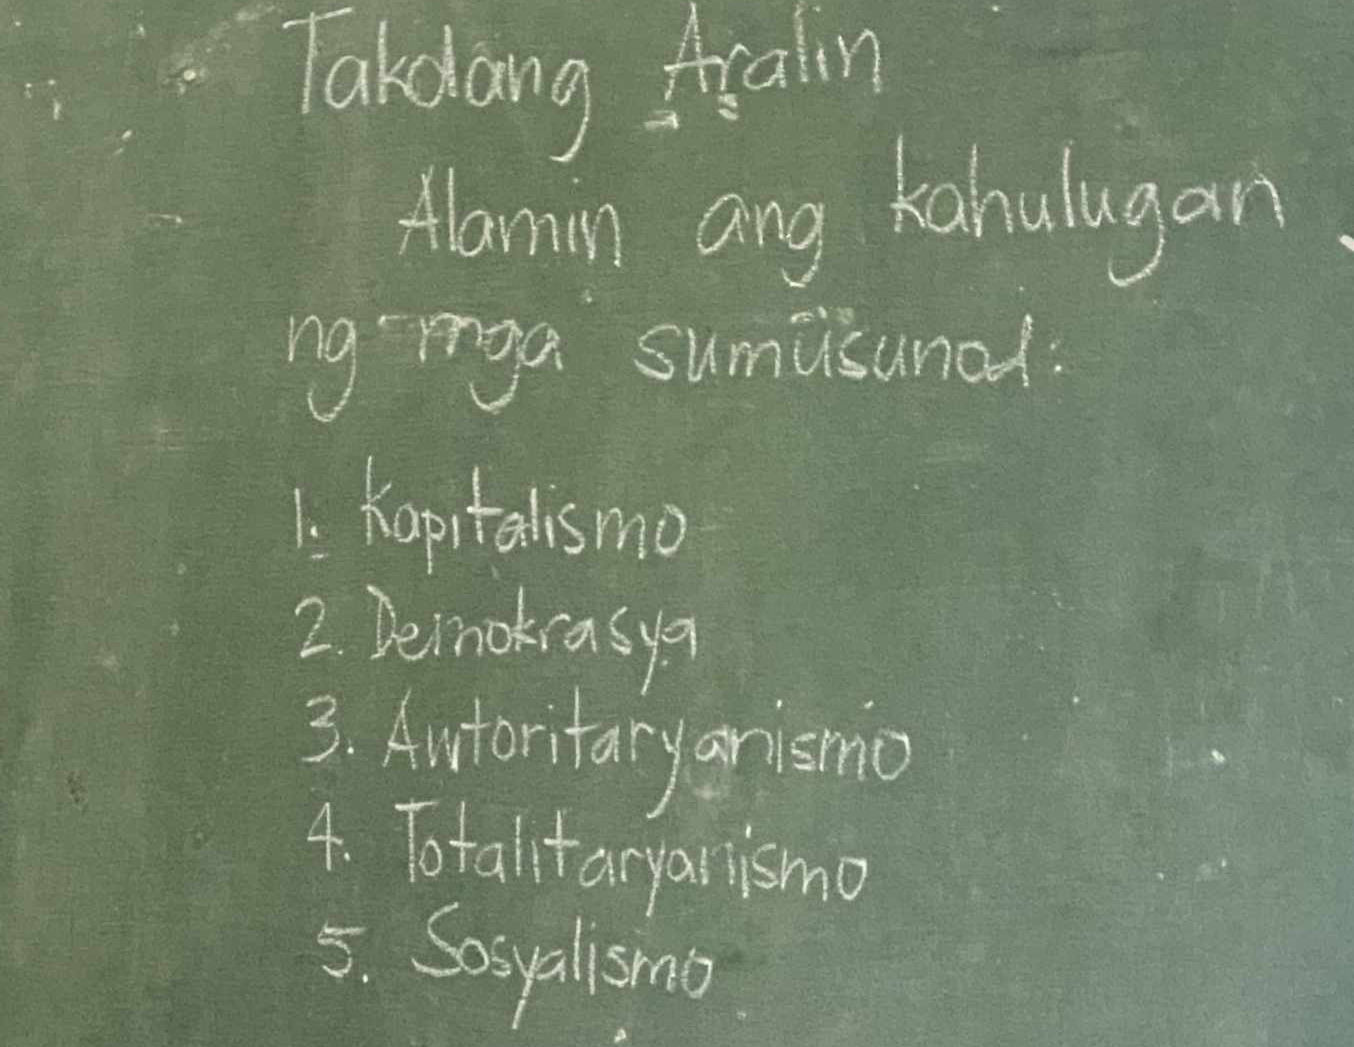 Takdang Aralin
Alamin ang kahulugan
ng mga sumusunod:
1. Kapitalismo
2. Demokrasya
3. Awtoritaryanismo
4. Totalitaryanismo
5. Sosyalismo